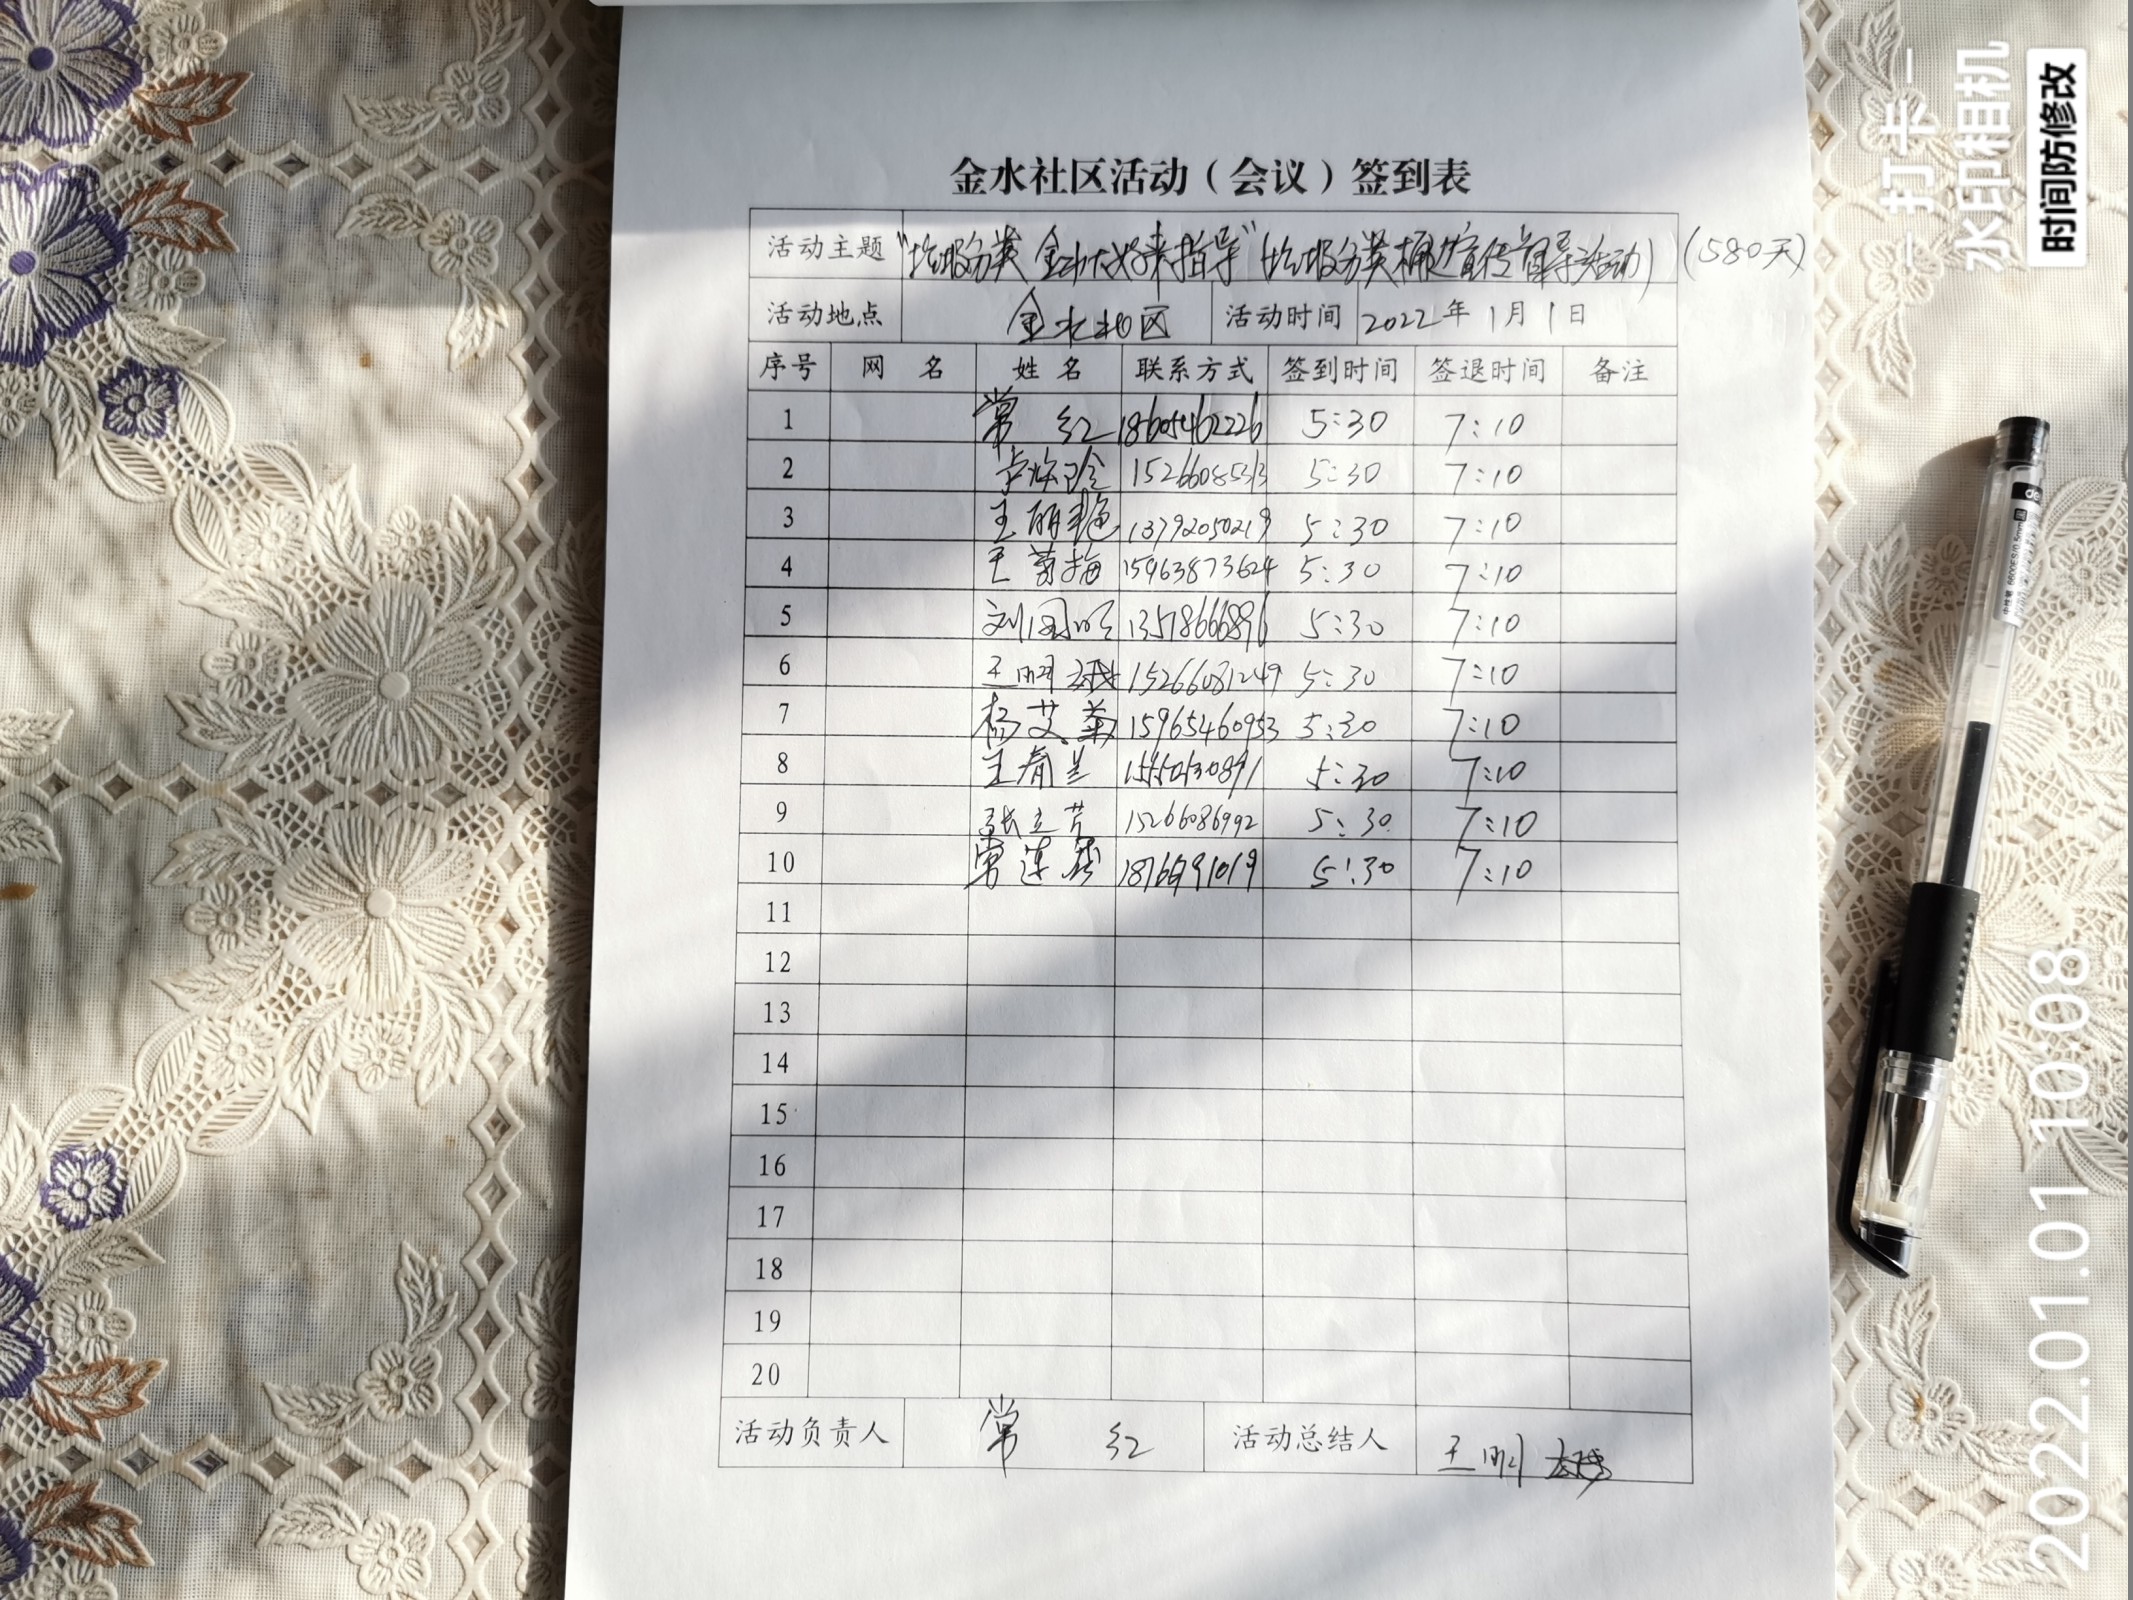 金水社区活动（会议）签到表
活动主题 "垃圾分类 金水大嫂来指导"（垃圾分类桶边宣传督导活动）（580天）
活动地点 金水社区 活动时间 2022年1月1日
序号 网名 姓名 联系方式 签到时间 签退时间 备注
1 常红 18605462226 5:30 7:10
2 15266085313 5:30 7:10
3 王丽艳 13792050219 5:30 7:10
4 王菊梅 15963873624 5:30 7:10
5 5:30 7:10
6 15266081249 5:30 7:10
7 杨艾菊 15965460953 5:30 7:10
8 王春兰 5:30 7:10
9 张立芹 15266086992 5:30 7:10
10 5:30 7:10
11
12
13
14
15
16
17
18
19
20
活动负责人 常红 活动总结人 王明
打卡
水印相机
时间防修改
2022.01.01 10:08